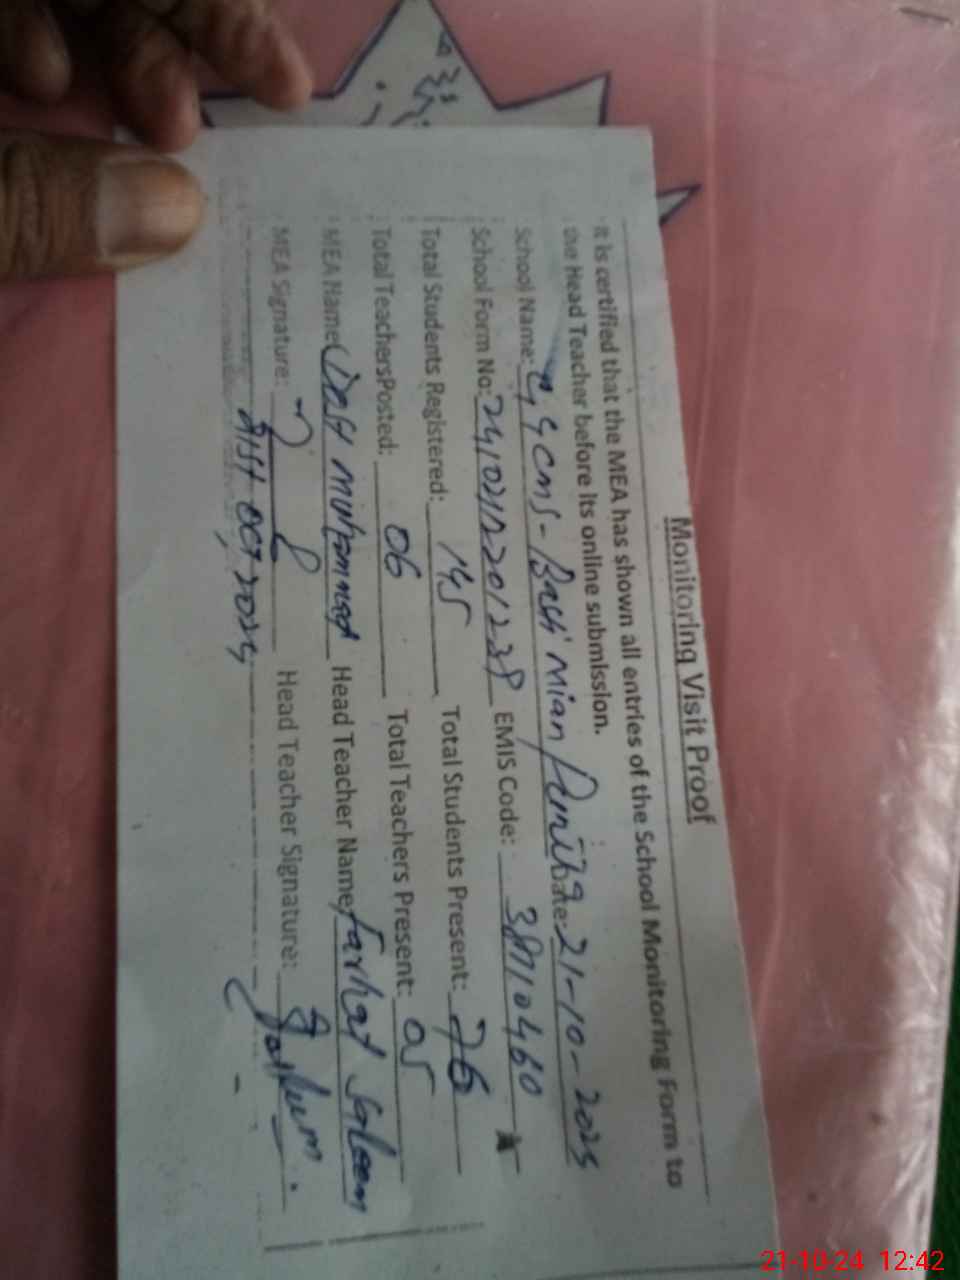 Monitoring Visit Proof
It is certified that the MEA has shown all entries of the School Monitoring Form to
the Head Teacher before its online submission.
School Name: GGCMS-Basti Mian Date: 21-10-2024
School Form No: EMIS Code:
Total Students Registered: 145 Total Students Present: 76
Total TeachersPosted: 06 Total Teachers Present: 05
MEA Name Dost Muhammad Head Teacher Name Farhat Saleem
MEA Signature: Head Teacher Signature:
21st OCT, 2024
21-10-24 12:42